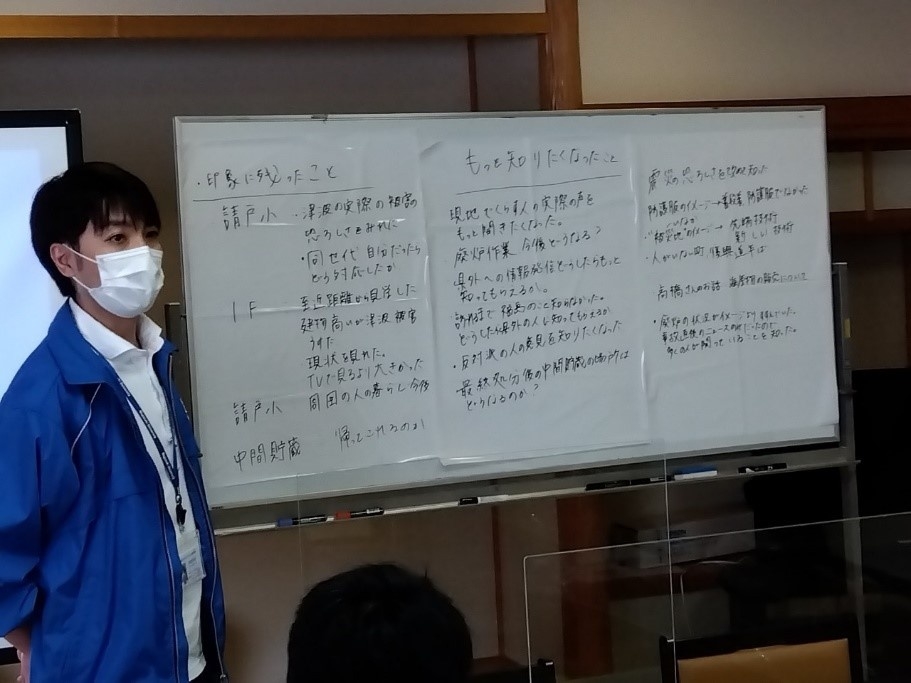 ・印象に残ったこと
請戸小 ・津波の実際の被害の
恐ろしさをみれた
・同世代 自分だったら
どう対応したか
1F 至近距離から見学した
建物高いが津波被害
うけた
現状を見れた。
TVで見るより大きかった
請戸小 周囲の人の暮らし今後
中間貯蔵 帰ってこれるのか
もっと知りたくなったこと
現地でくらす人の実際の声を
もっと聞きたくなった。
廃炉作業 今後どうなる?
県外への情報発信をどうしたらもっと
知ってもらえるか。
福島のこと知らなかった。
どうしたら県外の人に知ってもらえるか
・反対派の人の意見を知りたくなった
最終処分後の中間貯蔵の場所は
どうなるのか?
震災の恐ろしさを改め知った
防護服のイメージ→ 防護服でなかった
"被災地"のイメージ→ 先端技術
新しい技術
・人がいない町、復興道半ば
高橋さんのお話 について
・廃炉の状況がイメージより進んでいた。
事故直後のニュースの
多くの人が関っていることを知った。